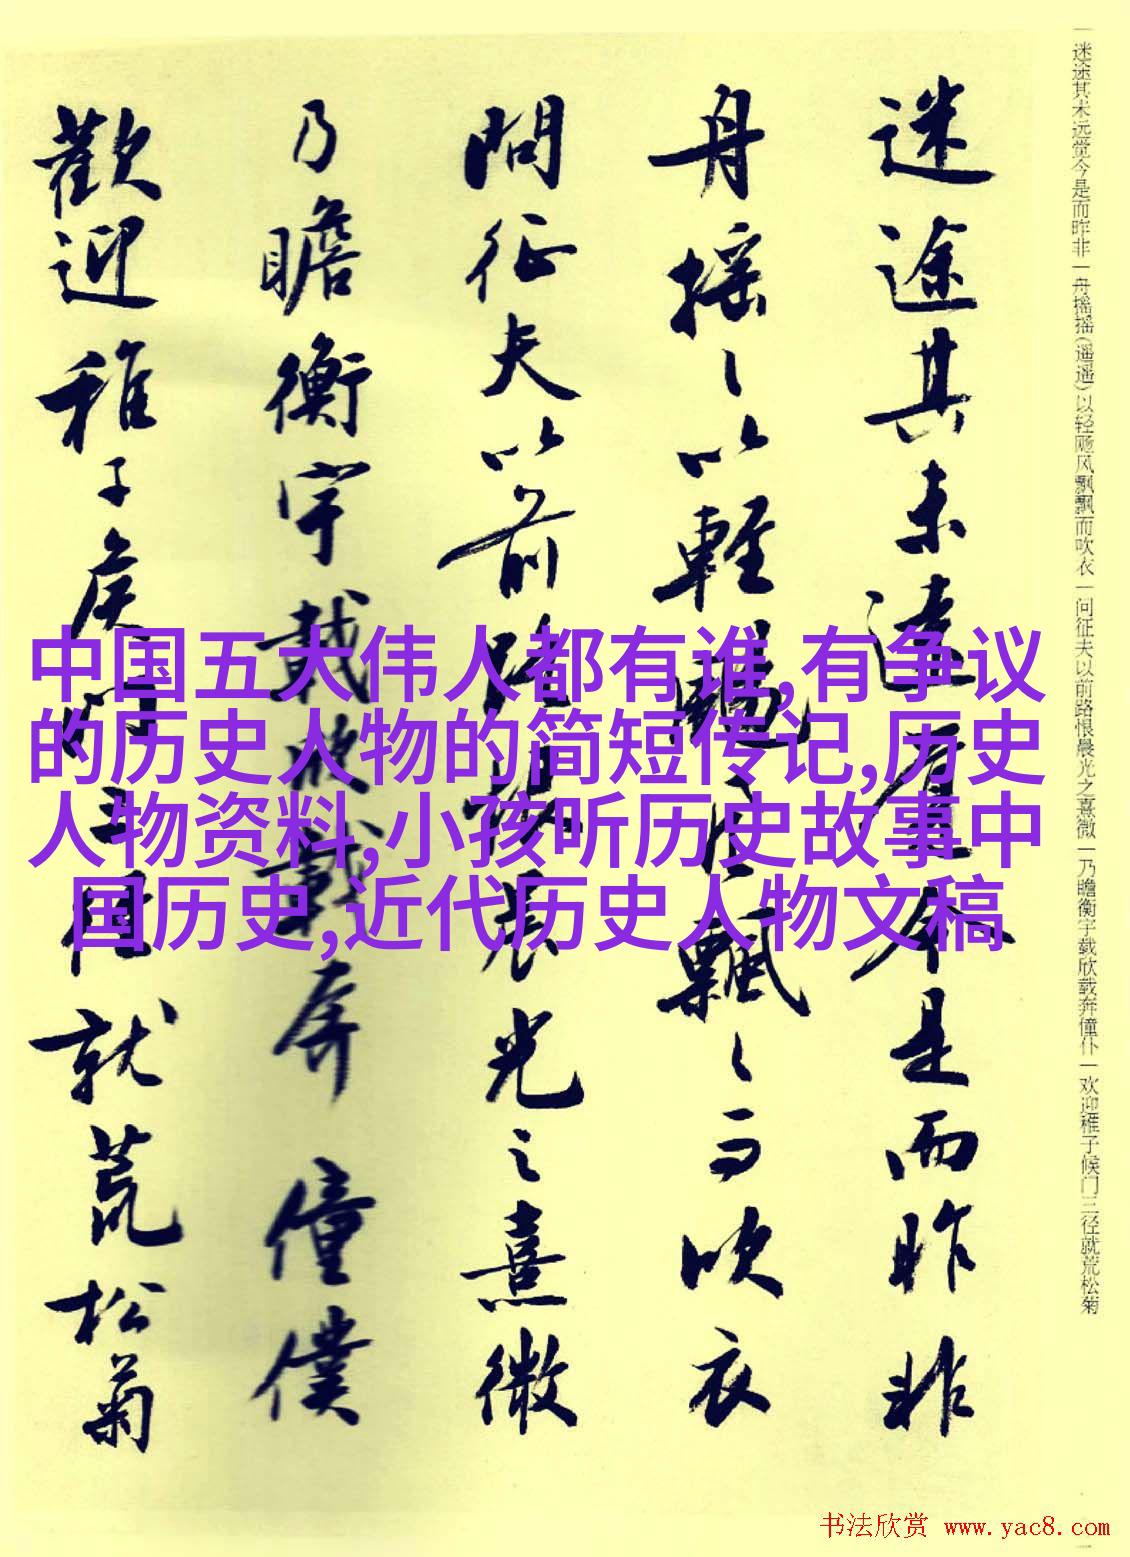 一迷途其未远觉今是而昨非一舟摇摇(遥遥)以轻飏风飘飘而吹衣一问征夫以前路恨晨光之熹微一乃瞻衡宇载欣载奔僮仆一欢迎稚子候门三径就荒松菊
迷途其未遠覺今是而昨非
舟摇々以輕颺風飄々而吹衣
問征夫以前路恨晨光之熹微
乃瞻衡宇載欣載奔僮僕
歡迎稚子候門三徑就荒松菊
中国五大伟人都有谁,有争议
的历史人物的简短传记,历史
人物资料,小孩听历史故事中
国历史,近代历史人物文稿
书法欣赏 www.yac8.com